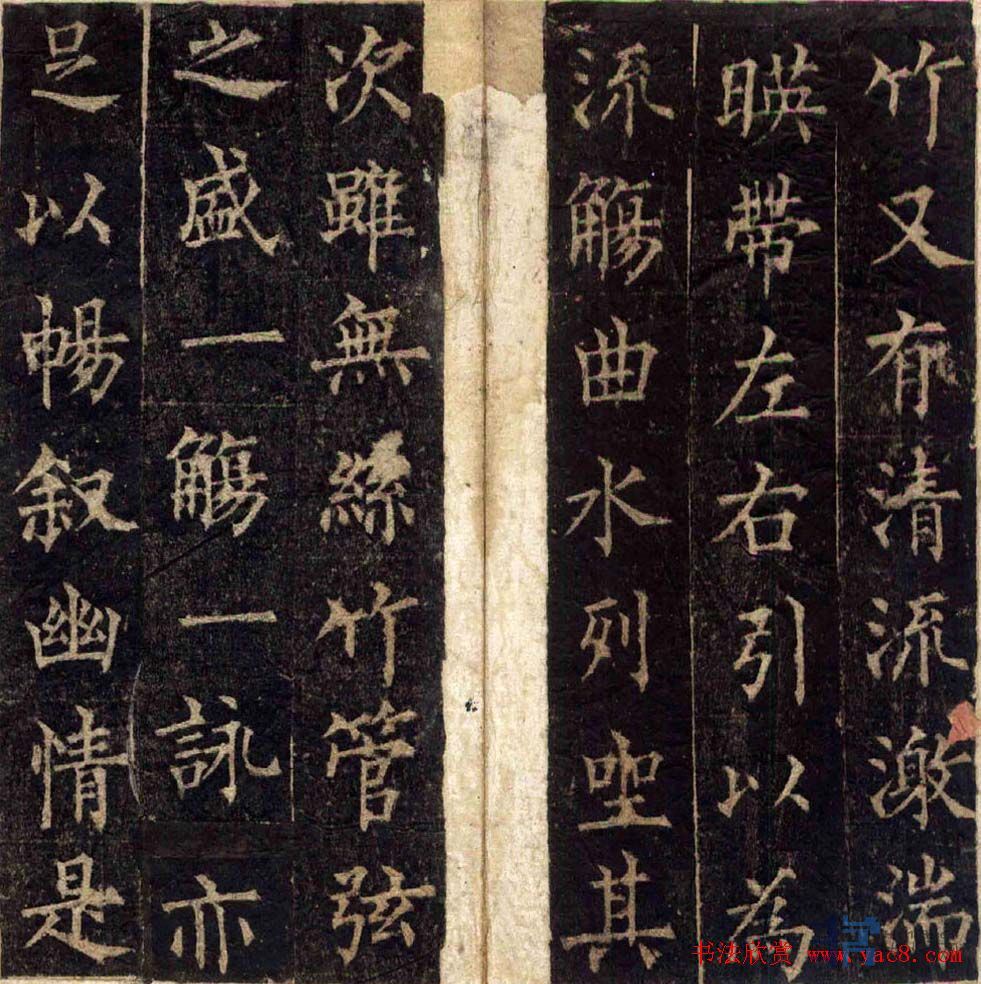 竹又有清流激湍
暎帶左右引以為
流觴曲水列坐其
次雖無絲竹管弦
之盛一觴一詠亦
足以暢叙幽情是
书法欣赏 www.yac8.com